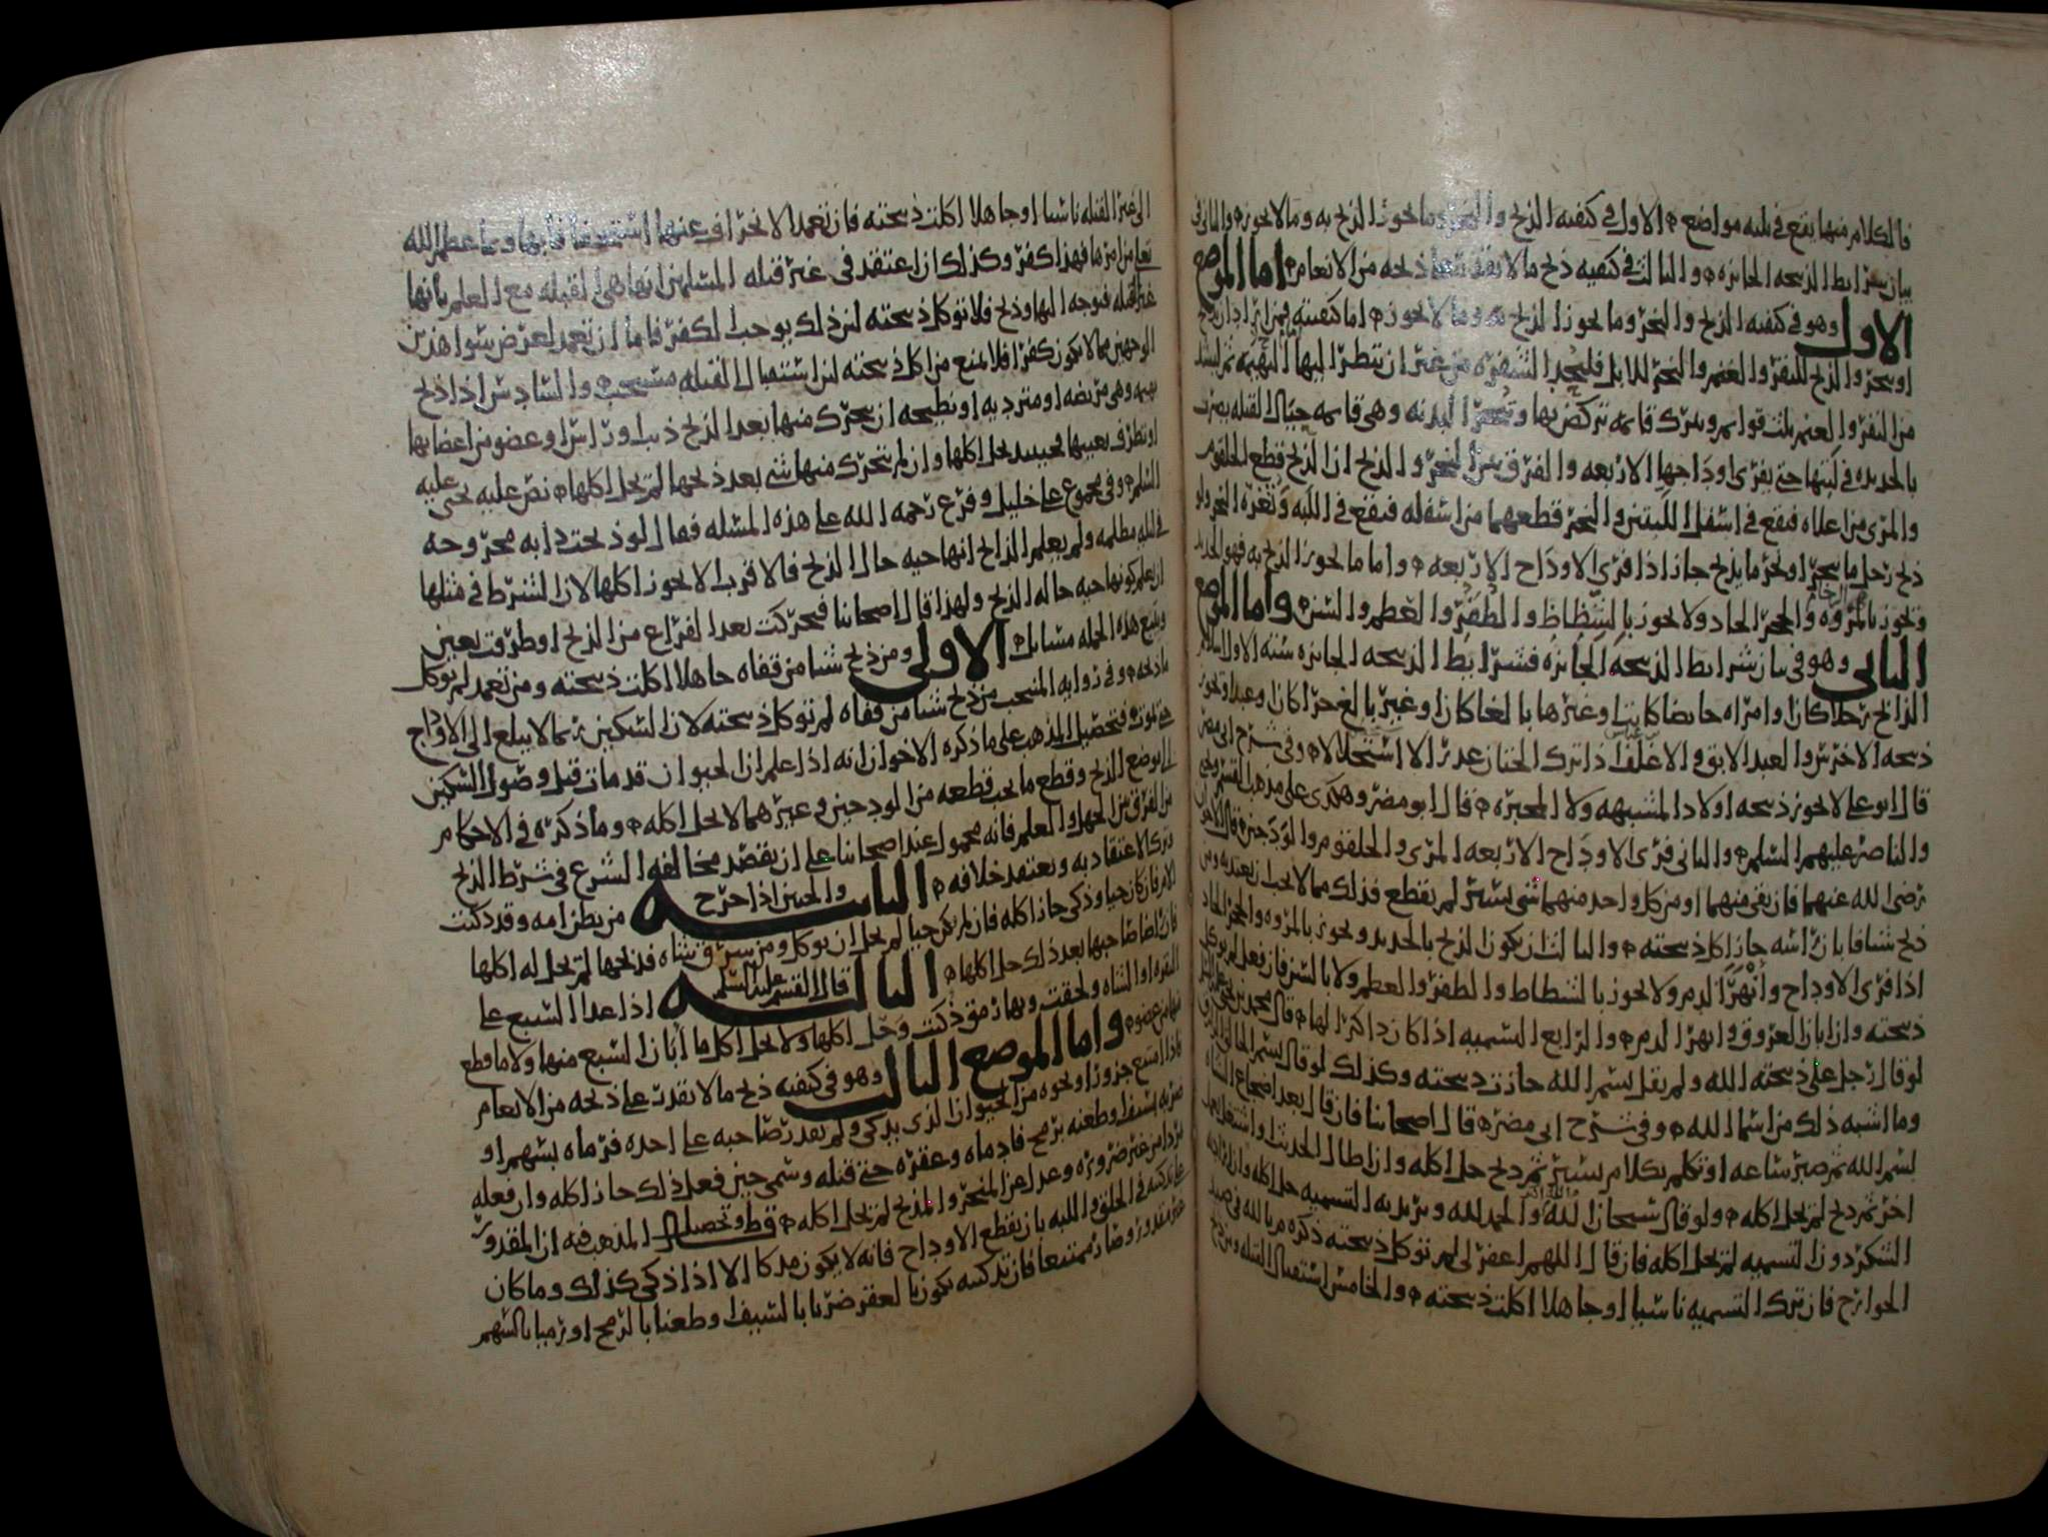 فالكلام منها يقع في ثلثه مواضع الاول في كيفيه الذبح والنحر وما يجوز الذبح به وما لا يجوز والثاني في
بيان شرايط الذبيحه الجايزه والثالث في كيفيه ذبح ما لا يقدر على ذبحه من الانعام اما الموضع
الاول وهو في كيفيه الذبح والنحر وما يجوز الذبح به وما لا يجوز اما كيفيته فمن اراد ان يذبح
او ينحر والذبح للبقر والغنم والنحر للابل فليحد الشفره من غير ان تنظر اليها البهيمه ثم ليشد
من البقر والغنم ثلث قوايم ويترك قايمه تركض بها وتنحر البدنه وهي قايمه حيال القبله يضرب
بالحديده في لبتها حتى يفري اوداجها الاربعه والفرق بين النحر والذبح ان الذبح قطع الحلقوم
والمري من اعلاه فيقع في اسفل اللبتين والنحر قطعهما من اسفله فيقع في اللبه وثغره النحر ولو
ذبح رجل ما ينحر او نحر ما يذبح جاز اذا فرى الاوداج الاربعه واما ما يجوز الذبح به فهو الحديد
ويجوز بالمروه والحجر الحاد ولا يجوز بالشظاظ والظفر والعظم والسن واما الموضع
الثاني وهو في بيان شرايط الذبيحه الجايزه فشرايط الذبيحه الجايزه سته الاول اسلام
الذابح رجلا كان او امراه حايضا كانت او غيرها بالغا كان او غير بالغ حرا كان او عبدا وتجوز
ذبيحه الاخرس والعبد الابق والاغلف اذا ترك الختان عذرا لا استحلالا وفي شرح ابي مضر
قال ابو علي لا يجوز ذبيحه اولاد المشبهه ولا المجبره قال ابو مضر وهكذى على مذهب القسم ويحيى
والناصر عليهم السلم والثاني فري الاوداج الاربعه المري والحلقوم والودجين قال الاخوان
رضي الله عنهما فان بقي منهما او من كل واحد منهما شي يسير لم يقطع فذلك مما لا يجب ان يعتد به ومن
ذبح شيا فابان راسه جاز اكل ذبيحته والثالث ان يكون الذبح بالحديد ويجوز بالمروه والحجر الحاد
اذا فرى الاوداج وانهر الدم ولا يجوز بالشظاظ والظفر والعظم ولا بالسن فان فعل لم يوكل
ذبيحته وان ابان العروق وانهر الدم والرابع التسميه اذا كان ذاكرا لها قال محمد بن يحيى
لو قال رجل على ذبيحته الله ولم يقل بسم الله جازت ذبيحته وكذلك لو قال بسم الخالق
وما اشبه ذلك من اسما الله وفي شرح ابي مضر قال اصحابنا فان قال بعد اضجاع الشاه
بسم الله ثم صبر ساعه او تكلم بكلام يسير ثم ذبح حل اكله وان اطال الحديث او اشتغل بعمل
اخر ثم ذبح لم يحل اكله ولو قال سبحان الله والحمد لله ويريد به التسميه حل اكله وان اراد به
الشكر دون التسميه لم يحل اكله فان قال اللهم اغفر لي لم توكل ذبيحته ذكره م بالله في صيد
الجوارح فان ترك التسميه ناسيا او جاهلا اكلت ذبيحته والخامس استقبال القبله ومن ذبح
الى غير القبله ناسيا او جاهلا اكلت ذبيحته فان تعمد الانحراف عنها استخفافا بها وبما عظم الله
تعالى من امرها فهذا كفر وكذلك ان اعتقد في غير قبله المسلمين انها هي القبله مع العلم بانها
غير القبله فتوجه اليها وذبح فلا توكل ذبيحته لان ذلك يوجب الكفر فاما ان تعمد لغرض سوا هذين
الوجهين مما لا يكون كفرا فلا يمنع من اكل ذبيحته لان استقبال القبله مستحب والسادس اذا ذبح
بهيمه وهي مريضه او مترديه او نطيحه ان يتحرك منها بعد الذبح ذنب او راس او عضو من اعضايها
او تطرف بعينها فحينيذ يحل اكلها وان لم يتحرك منها شي بعد ذبحها لم يحل اكلها نص عليه يحيى عليه
السلم وفي مجموع علي خليل وفرع رحمه الله على هذه المسله فقال لو ذبحت دابه مجروحه
في ليله مظلمه ولم يعلم الذابح انها حيه حال الذبح قال الاقرب الا يجوز اكلها لان الشرط في مثلها
ان يعلم كونها حيه حاله الذبح ولهذا قال اصحابنا فتحركت بعد الفراغ من الذبح او طرفت بعين
ويتبع هذه الجمله مسايل الاولى ومن ذبح شيا من قفاه جاهلا اكلت ذبيحته ومن تعمد لم توكل
ذبيحته وفي زوايد المنتخب من ذبح شيا من قفاه لم توكل ذبيحته لان السكين ربما لا يبلغ الى الاوداج
حتى تموت وتحصيل المذهب على ما ذكره الاخوان انه اذا علم ان الحيوان قد مات قبل وصول السكين
الى موضع الذبح وقطع ما يجب قطعه من الودجين وغيرهما لا يحل اكله وما ذكره في الاحكام
من الفرق بين الجهل والعلم فانه محمول عند اصحابنا على ان يقصد مخالفه الشرع في شرط الذبح
وترك الاعتقاد به ويعتقد خلافه الثانيه والجنين اذا خرج من بطن امه وقد ذكيت
الام فان كان حيا وذكي جاز اكله فان لم يكن حيا لم يحل ان يوكل ومن سرق شاه فذبحها لم يحل له اكلها
فان راضا صاحبها بعد ذلك حل اكلها الثالثه قال القسم عليه السلم اذا عدا السبع على
البقره او الشاه ولحقت وبها رمق ذكيت وحل اكلها ولا يحل اكل ما ابان السبع منها ولا ما قطع
منها من عضو واما الموضع الثالث وهو في كيفيه ذبح ما لا يقدر على ذبحه من الانعام
فاذا امتنع جزور او نحوه من الحيوان الذي يذكى ولم يقدر صاحبه على اخذه فرماه بسهم او
ضربه بسيف او طعنه برمح فادماه وعقره حتى قتله وسمى حين فعل ذلك جاز اكله وان فعله
من غير ضروره وعدل عن المنحر والمذبح لم يحل اكله وتحصيل المذهب فيه ان المقدور
على تذكيته في الحلق واللبه بان يقطع الاوداج فانه لا يكون مذكا الا اذا ذكي كذلك وما كان
غير مقدور وصار ممتنعا فان تذكيته يكون بالعقر ضربا بالسيف وطعنا بالرمح او رميا بالسهم